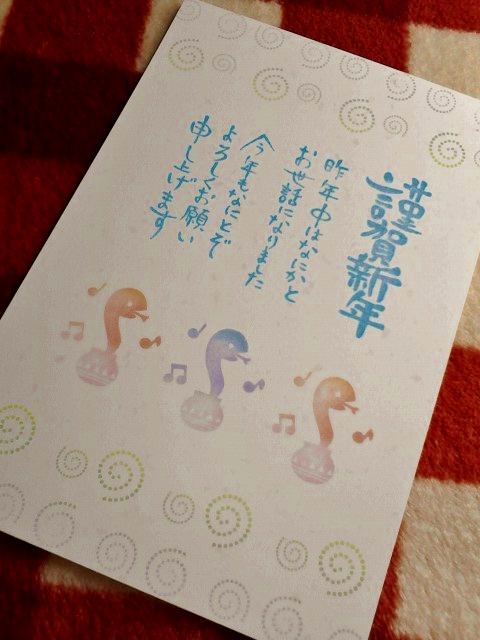 謹賀新年
昨年中はなにかと
お世話になりました
今年もなにとぞ
よろしくお願い
申し上げます